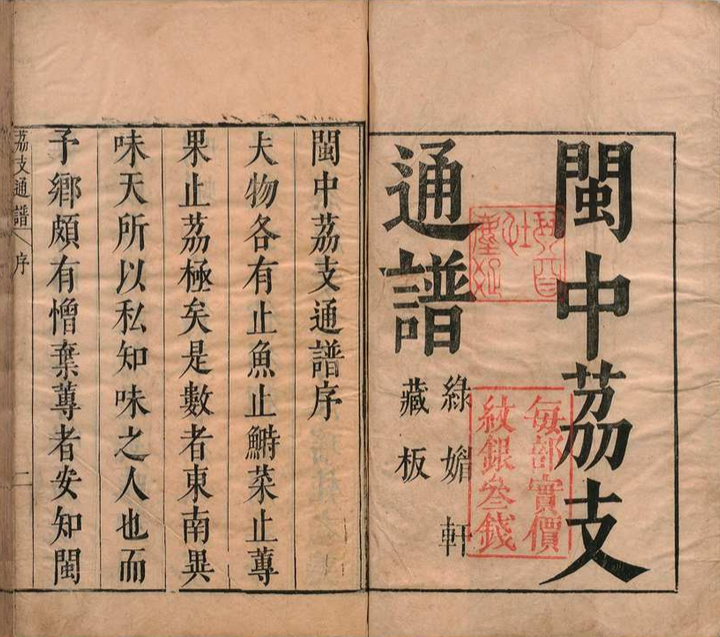 閩中茘支
通譜
綠媚軒
藏板
每部實價
紋銀叄錢
閩中茘支通譜序
夫物各有止魚止鰣菜止蓴
果止茘極矣是數者東南異
味天所以私知味之人也而
予鄉頗有憎棄蓴者安知閩
茘支通譜
序
一